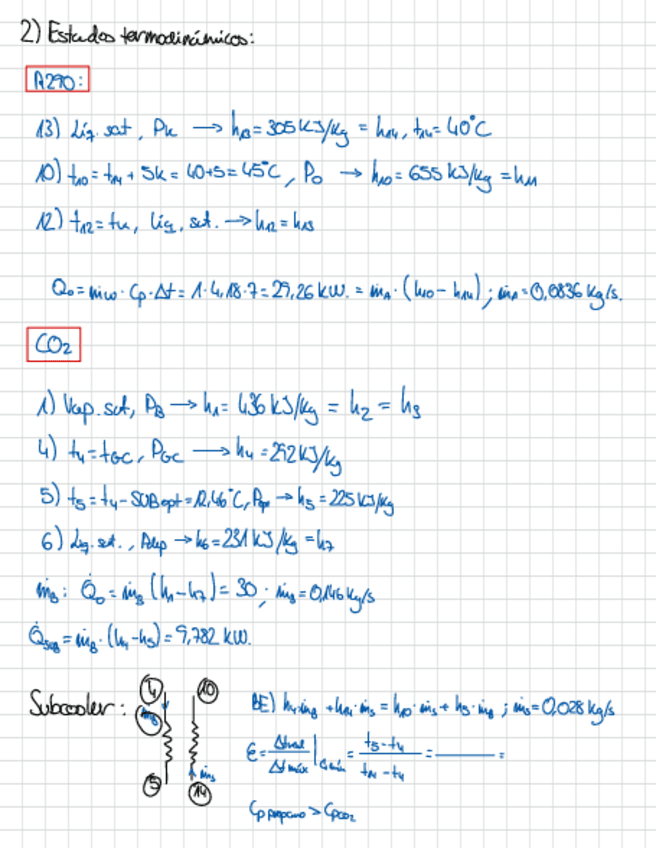 2) Estados termodinámicos:
R290:
13) Liq. sat, Pk → h13 = 305 kJ/kg = h14, t14 = 40°C
10) t10 = t14 + 5K = 40+5 = 45°C, P0 → h10 = 655 kJ/kg = h11
12) t12 = t11, liq, sat. → h12 = h13
Q0 = ṁw · Cp · Δt = 1 · 4,18 · 7 = 29,26 kW. = ṁA · (h10 - h14) ; ṁA = 0,0836 kg/s.
CO2
1) Vap. sat, PB → h1 = 436 kJ/kg = h2 = h3
4) t4 = tGC, PGC → h4 = 292 kJ/kg
5) t5 = t4 - SUBopt = 12,46°C, → h5 = 225 kJ/kg
6) Liq. sat., → h6 = 231 kJ/kg = h7
ṁB : Q̇0 = ṁB (h1 - h7) = 30 ; ṁB = 0,146 kg/s
Q̇SUB = ṁB · (h4 - h5) = 9,782 kW.
Subcooler:
4
10
ṁB
5
ṁs
14
BE) h4·ṁB + h14·ṁs = h10·ṁs + h5·ṁB ; ṁs = 0,028 kg/s
Є = Δtreal / Δtmáx | Cmín = t5 - t4 / t14 - t4 = ——— =
Cp propano > CpCO2